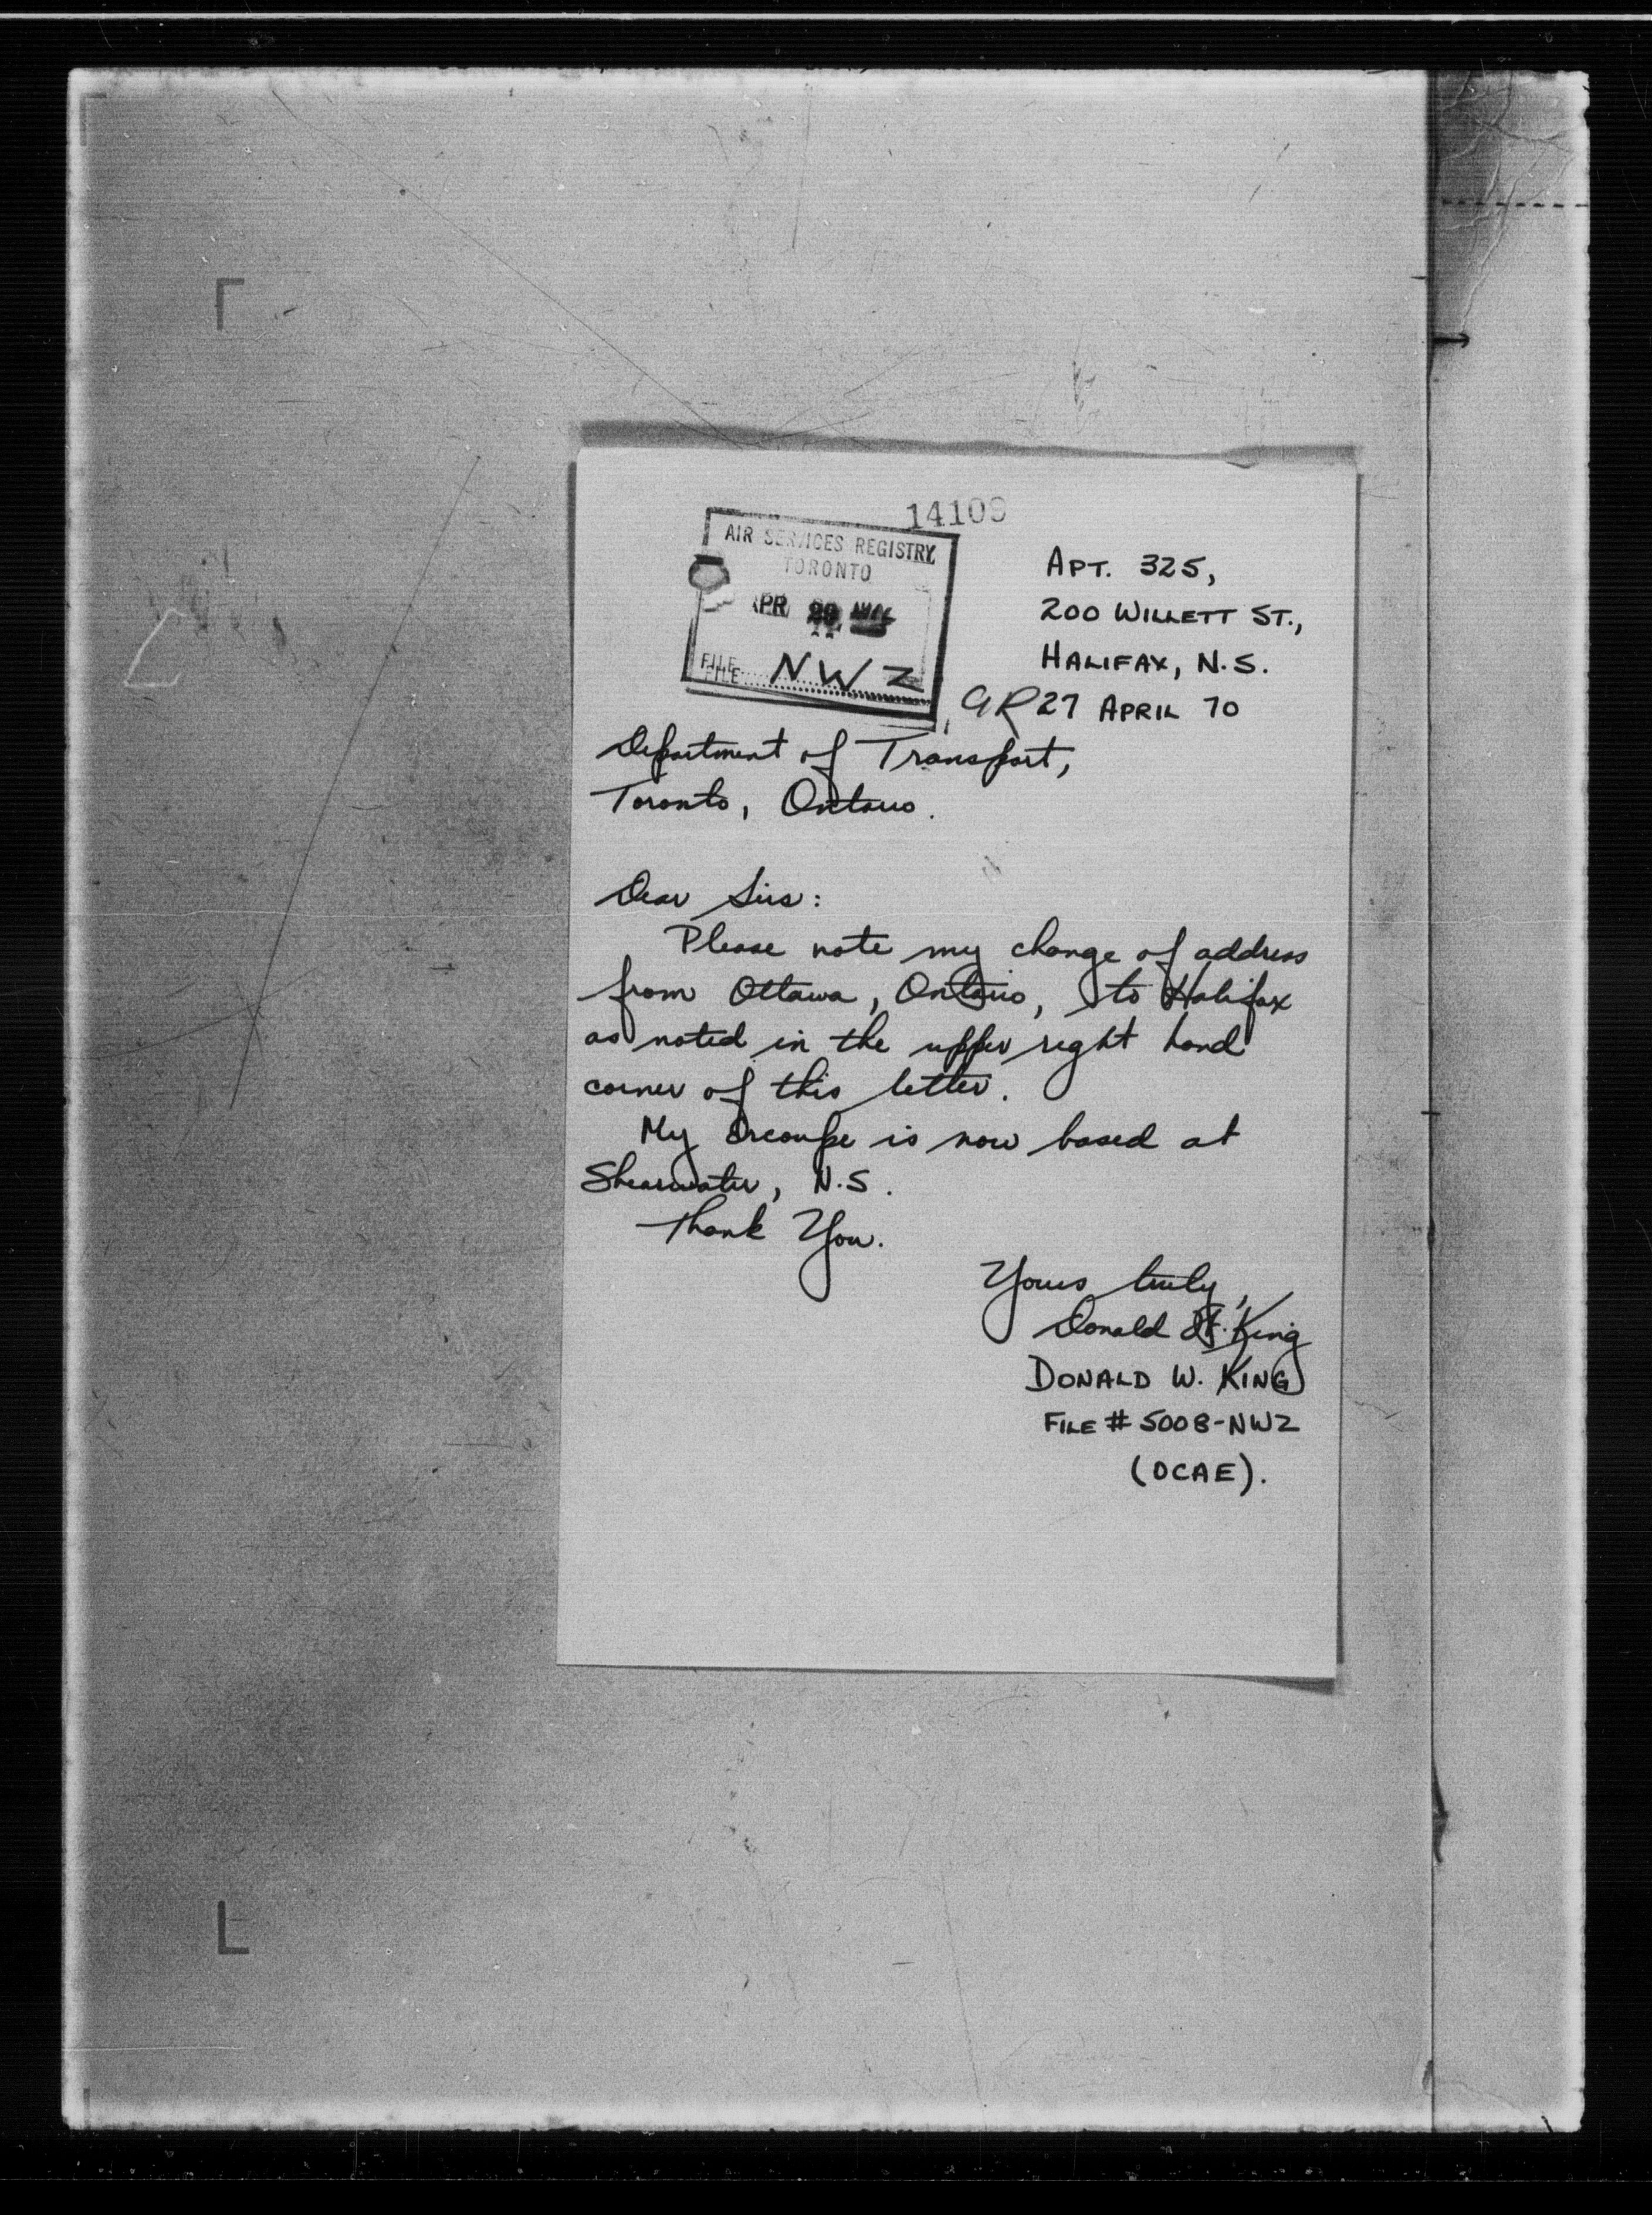 AIR SERVICES REGISTRY
TORONTO
APR 29
FILE NWZ
APT. 325,
200 WILLETT ST.,
HALIFAX, N.S.
27 APRIL 70
Department of Transport,
Toronto, Ontario.
Dear Sirs:
Please note my change of address
from Ottawa, Ontario, to Halifax
as noted in the upper right hand
corner of this letter.
My Ercoupe is now based at
Shearwater, N.S.
Thank You.
Yours truly,
Donald W. King
DONALD W. KING
FILE # 5008-NWZ
(OCAE).